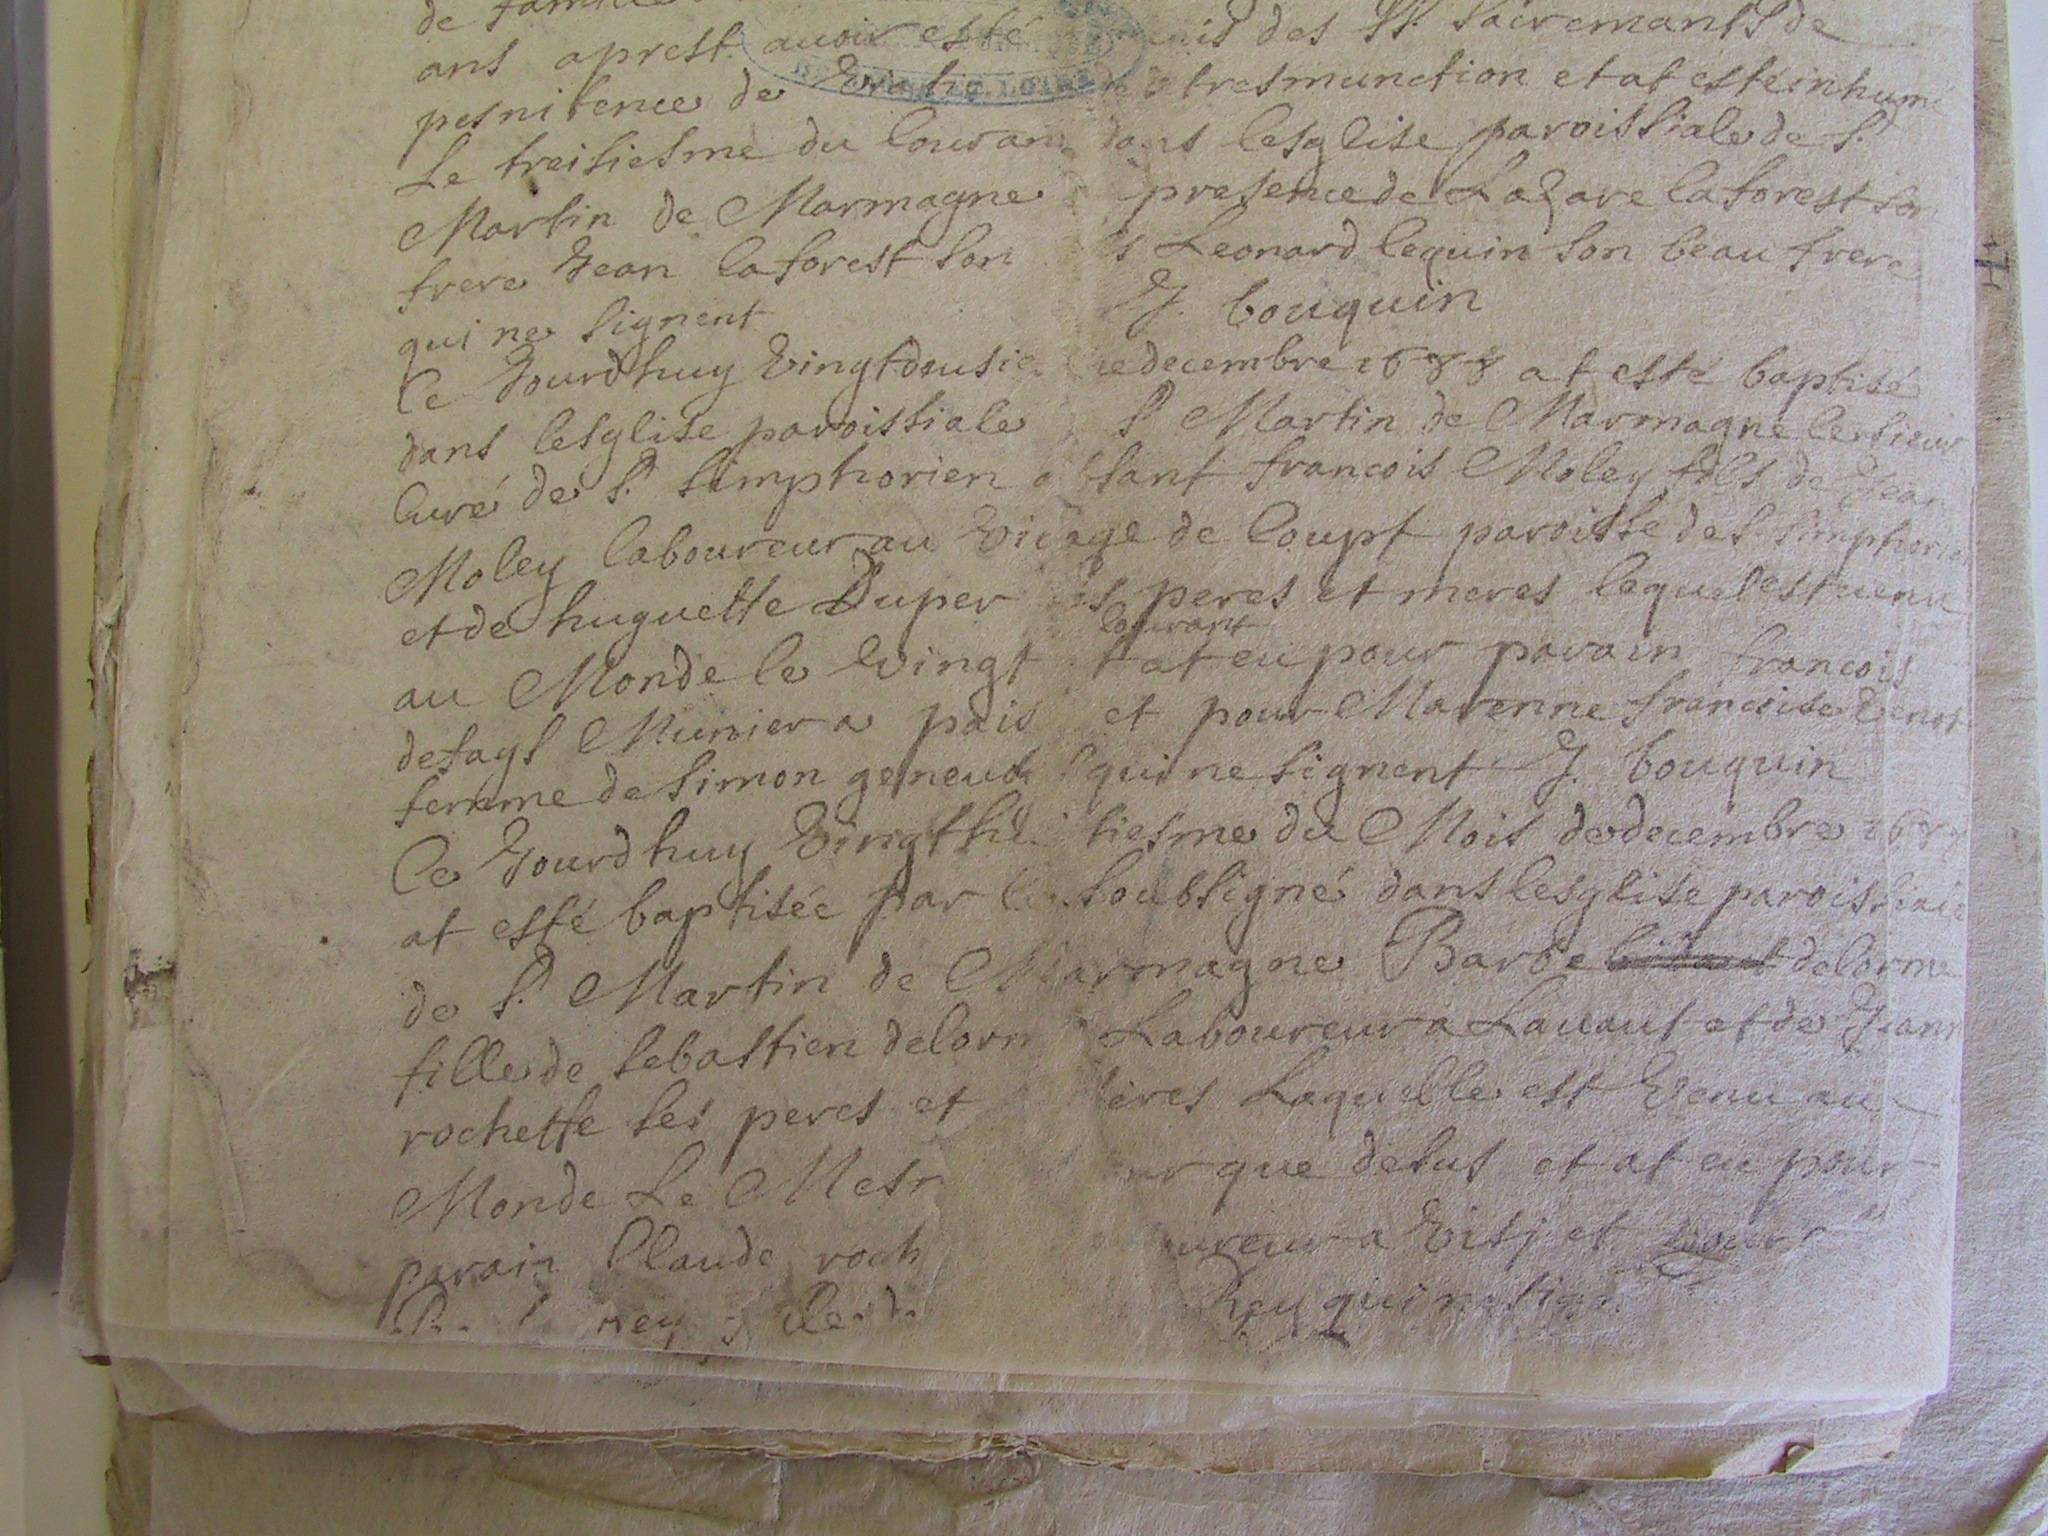 de famille
ans aprest avoir esté munis des SS. Sacremants de
pesnitence de et tresmunction et at esté inhumé
Le treisiesme du Couran dans lesglise paroissiale de St
Martin de Marmagne presence de Lazare laforest son
frere Jean laforest son Leonard lequin son beau frere
qui ne signent J. bouquin
Ce Jourdhuy Vingtdeusie decembre 1688 at esté baptisé
dans lesglise paroissiale St Martin de Marmagne le sieur
Curé de St Simphorien francois Moley fils de Jean
Moley laboureur au Vilage de Coupt paroisse de St Simphorien
et de huguette Duper peres et meres lequel est venu
courant
au Monde le Vingt at eu pour parain francois
desags Munier a pais et pour Marenne francoise Venot
femme de Simon qui ne signent J. bouquin
Ce Jourdhuy Vingthui tiesme du Mois de decembre 1688
at esté baptisée par le soubsigné dans lesglise paroissiale
de St Martin de Marmagne Barbe delorme
fille de Sebastien delorm Laboureur a Lavaut et de Jeann
rochette ses peres et Laquelle est Venu au
Monde Le Mesm que desus et at eu pour
parain Claude roch a Visj et pour
qui ne sign